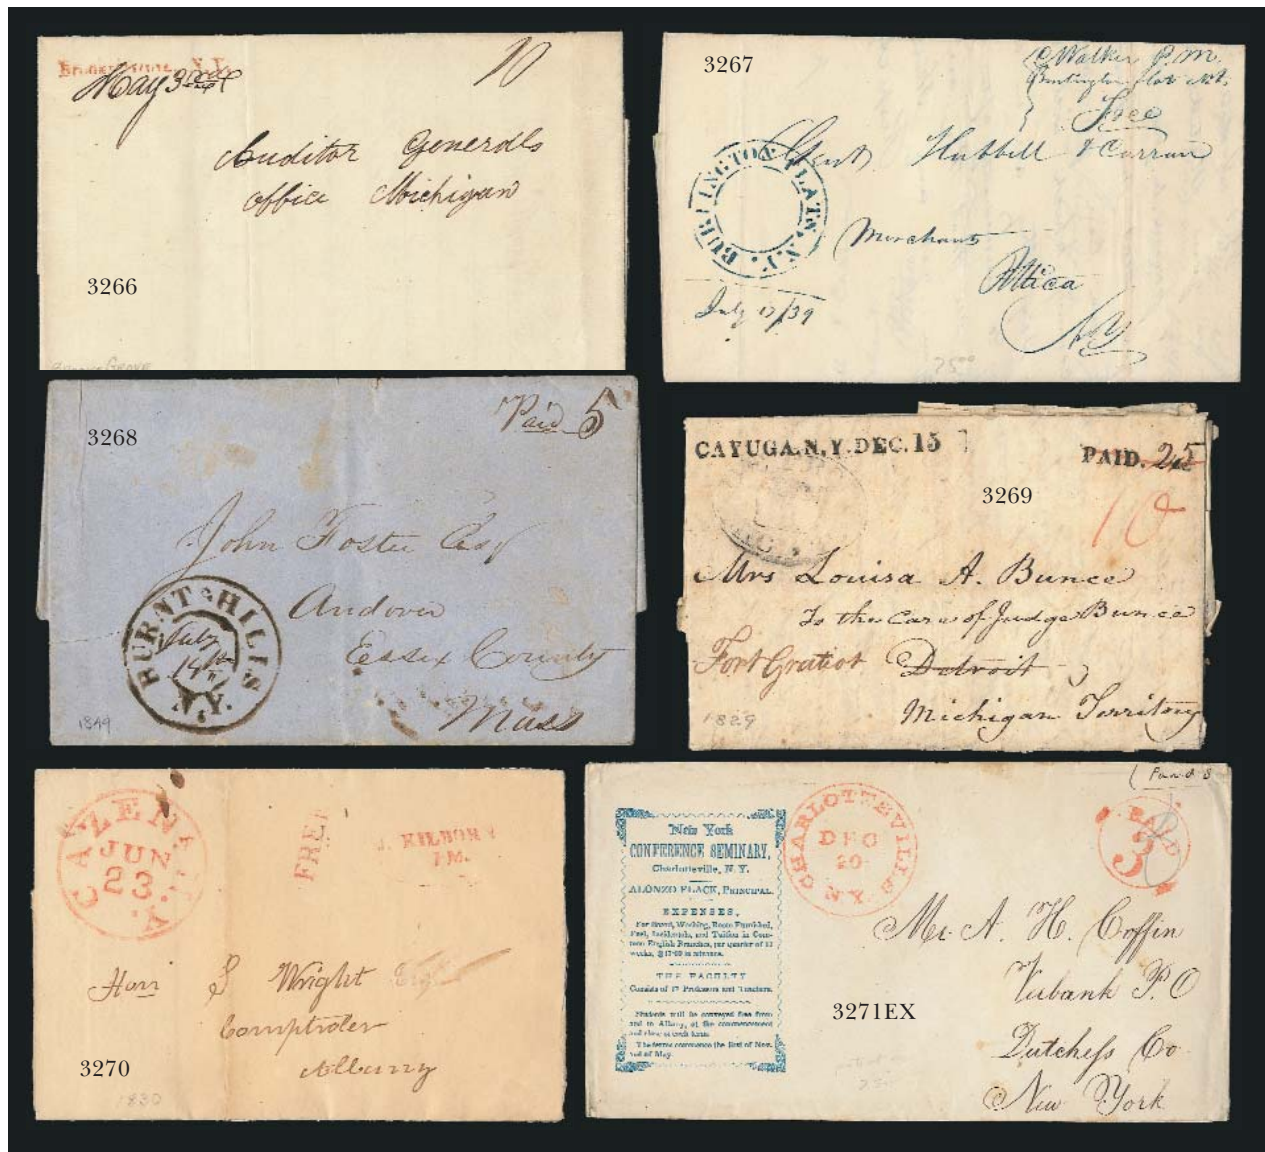 N.Y.
May 3rd
10
Auditor Generalls
office Michigan
3266
GROVE
3267
C Walker P.M.
Burlington flats N.Y.
Free
BURLINGTON FLATS. N.Y.
Gent Hubbell & Curran
Merchants
Attica
NY
July 17/39
7500
3268
Paid 5
John Foster Esq
Andover
Essex County
Mass
BURNT HILLS
July
14th
N.Y.
1849
CAYUGA.N.Y.DEC.15
PAID. 25
3269
10
Mrs Louisa A. Bunce
To the Care of Judge Bunce
Fort Gratiot Detroit
Michigan Territory
1829
CAZENA. N.Y.
JUN
23
FREE
J. KILBORN
P.M.
Harri S Wright Esq
Comptroler
Albany
3270
1830
New York
CONFERENCE SEMINARY,
Charlotteville, N. Y.
ALONZO FLACK, PRINCIPAL.
EXPENSES.
For Board, Washing, Room Furnished,
Fuel, Incidentals, and Tuition in Com-
mon English Branches, per quarter of 11
weeks,
THE FACULTY
Consists of 17 Professors and Teachers.
Students will be conveyed free from
and to Albany, at the commencement
and close of each term.
The terms commence the first of Nov.
and of May.
CHARLOTTEVILLE
DEC
20
N.Y.
PAID
3
Mr A. H. Coffin
P.O
Dutchess Co
New York
3271EX